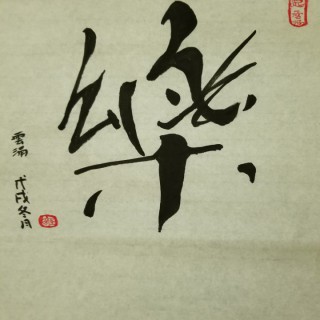 樂
雲涌 戊戌冬月